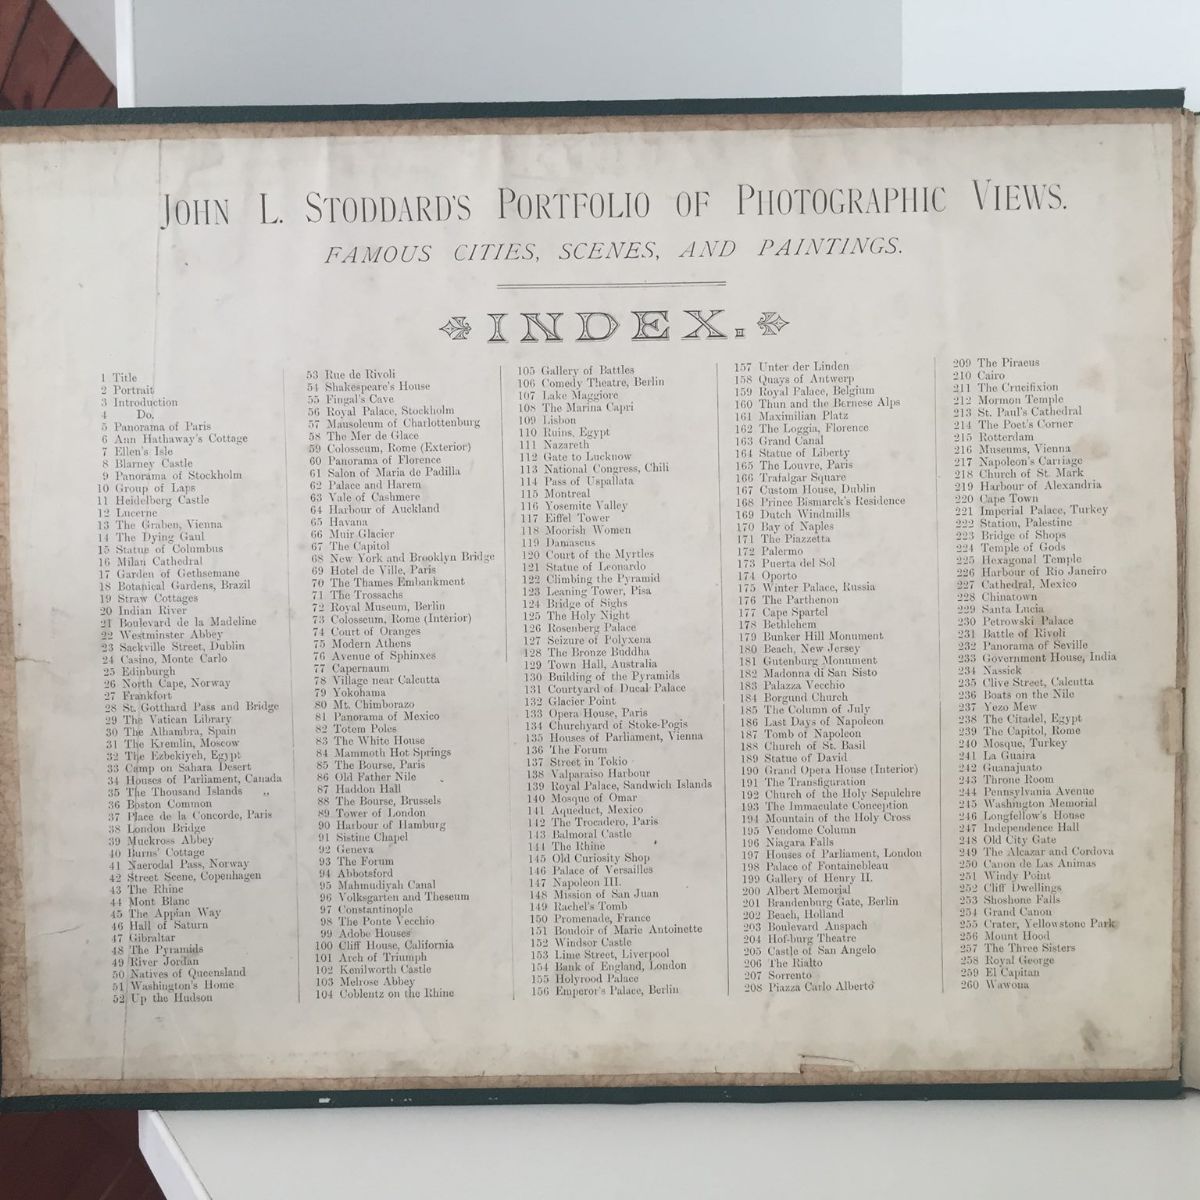 JOHN L. STODDARD'S PORTFOLIO OF PHOTOGRAPHIC VIEWS.
FAMOUS CITIES, SCENES, AND PAINTINGS.
INDEX.
1 Title
2 Portrait
3 Introduction
4 Do.
5 Panorama of Paris
6 Ann Hathaway's Cottage
7 Ellen's Isle
8 Blarney Castle
9 Panorama of Stockholm
10 Group of Laps
11 Heidelberg Castle
12 Lucerne
13 The Graben, Vienna
14 The Dying Gaul
15 Statue of Columbus
16 Milan Cathedral
17 Garden of Gethsemane
18 Botanical Gardens, Brazil
19 Straw Cottages
20 Indian River
21 Boulevard de la Madeline
22 Westminster Abbey
23 Sackville Street, Dublin
24 Casino, Monte Carlo
25 Edinburgh
26 North Cape, Norway
27 Frankfort
28 St. Gotthard Pass and Bridge
29 The Vatican Library
30 The Alhambra, Spain
31 The Kremlin, Moscow
32 The Ezbekiyeh, Egypt
33 Camp on Sahara Desert
34 Houses of Parliament, Canada
35 The Thousand Islands „
36 Boston Common
37 Place de la Concorde, Paris
38 London Bridge
39 Muckross Abbey
40 Burns' Cottage
41 Naerodal Pass, Norway
42 Street Scene, Copenhagen
43 The Rhine
44 Mont Blanc
45 The Appian Way
46 Hall of Saturn
47 Gibraltar
48 The Pyramids
49 River Jordan
50 Natives of Queensland
51 Washington's Home
52 Up the Hudson
53 Rue de Rivoli
54 Shakespeare's House
55 Fingal's Cave
56 Royal Palace, Stockholm
57 Mausoleum of Charlottenburg
58 The Mer de Glace
59 Colosseum, Rome (Exterior)
60 Panorama of Florence
61 Salon of Maria de Padilla
62 Palace and Harem
63 Vale of Cashmere
64 Harbour of Auckland
65 Havana
66 Muir Glacier
67 The Capitol
68 New York and Brooklyn Bridge
69 Hotel de Ville, Paris
70 The Thames Embankment
71 The Trossachs
72 Royal Museum, Berlin
73 Colosseum, Rome (Interior)
74 Court of Oranges
75 Modern Athens
76 Avenue of Sphinxes
77 Capernaum
78 Village near Calcutta
79 Yokohama
80 Mt. Chimborazo
81 Panorama of Mexico
82 Totem Poles
83 The White House
84 Mammoth Hot Springs
85 The Bourse, Paris
86 Old Father Nile
87 Haddon Hall
88 The Bourse, Brussels
89 Tower of London
90 Harbour of Hamburg
91 Sistine Chapel
92 Geneva
93 The Forum
94 Abbotsford
95 Mahmudiyah Canal
96 Volksgarten and Theseum
97 Constantinople
98 The Ponte Vecchio
99 Adobe Houses
100 Cliff House, California
101 Arch of Triumph
102 Kenilworth Castle
103 Melrose Abbey
104 Coblentz on the Rhine
105 Gallery of Battles
106 Comedy Theatre, Berlin
107 Lake Maggiore
108 The Marina Capri
109 Lisbon
110 Ruins, Egypt
111 Nazareth
112 Gate to Lucknow
113 National Congress, Chili
114 Pass of Uspallata
115 Montreal
116 Yosemite Valley
117 Eiffel Tower
118 Moorish Women
119 Damascus
120 Court of the Myrtles
121 Statue of Leonardo
122 Climbing the Pyramid
123 Leaning Tower, Pisa
124 Bridge of Sighs
125 The Holy Night
126 Rosenberg Palace
127 Seizure of Polyxena
128 The Bronze Buddha
129 Town Hall, Australia
130 Building of the Pyramids
131 Courtyard of Ducal Palace
132 Glacier Point
133 Opera House, Paris
134 Churchyard of Stoke-Pogis
135 Houses of Parliament, Vienna
136 The Forum
137 Street in Tokio
138 Valparaiso Harbour
139 Royal Palace, Sandwich Islands
140 Mosque of Omar
141 Aqueduct, Mexico
142 The Trocadero, Paris
143 Balmoral Castle
144 The Rhine
145 Old Curiosity Shop
146 Palace of Versailles
147 Napoleon III.
148 Mission of San Juan
149 Rachel's Tomb
150 Promenade, France
151 Boudoir of Marie Antoinette
152 Windsor Castle
153 Lime Street, Liverpool
154 Bank of England, London
155 Holyrood Palace
156 Emperor's Palace, Berlin
157 Unter der Linden
158 Quays of Antwerp
159 Royal Palace, Belgium
160 Thun and the Bernese Alps
161 Maximilian Platz
162 The Loggia, Florence
163 Grand Canal
164 Statue of Liberty
165 The Louvre, Paris
166 Trafalgar Square
167 Custom House, Dublin
168 Prince Bismarck's Residence
169 Dutch Windmills
170 Bay of Naples
171 The Piazzetta
172 Palermo
173 Puerta del Sol
174 Oporto
175 Winter Palace, Russia
176 The Parthenon
177 Cape Spartel
178 Bethlehem
179 Bunker Hill Monument
180 Beach, New Jersey
181 Gutenburg Monument
182 Madonna di San Sisto
183 Palazzo Vecchio
184 Borgund Church
185 The Column of July
186 Last Days of Napoleon
187 Tomb of Napoleon
188 Church of St. Basil
189 Statue of David
190 Grand Opera House (Interior)
191 The Transfiguration
192 Church of the Holy Sepulchre
193 The Immaculate Conception
194 Mountain of the Holy Cross
195 Vendome Column
196 Niagara Falls
197 Houses of Parliament, London
198 Palace of Fontainebleau
199 Gallery of Henry II.
200 Albert Memorial
201 Brandenburg Gate, Berlin
202 Beach, Holland
203 Boulevard Anspach
204 Hof-burg Theatre
205 Castle of San Angelo
206 The Rialto
207 Sorrento
208 Piazza Carlo Alberto
209 The Piraeus
210 Cairo
211 The Crucifixion
212 Mormon Temple
213 St. Paul's Cathedral
214 The Poet's Corner
215 Rotterdam
216 Museums, Vienna
217 Napoleon's Carriage
218 Church of St. Mark
219 Harbour of Alexandria
220 Cape Town
221 Imperial Palace, Turkey
222 Station, Palestine
223 Bridge of Shops
224 Temple of Gods
225 Hexagonal Temple
226 Harbour of Rio Janeiro
227 Cathedral, Mexico
228 Chinatown
229 Santa Lucia
230 Petrowski Palace
231 Battle of Rivoli
232 Panorama of Seville
233 Government House, India
234 Nassick
235 Clive Street, Calcutta
236 Boats on the Nile
237 Yezo Mew
238 The Citadel, Egypt
239 The Capitol, Rome
240 Mosque, Turkey
241 La Guaira
242 Guanajuato
243 Throne Room
244 Pennsylvania Avenue
245 Washington Memorial
246 Longfellow's House
247 Independence Hall
248 Old City Gate
249 The Alcazar and Cordova
250 Canon de Las Animas
251 Windy Point
252 Cliff Dwellings
253 Shoshone Falls
254 Grand Canon
255 Crater, Yellowstone Park
256 Mount Hood
257 The Three Sisters
258 Royal George
259 El Capitan
260 Wawona